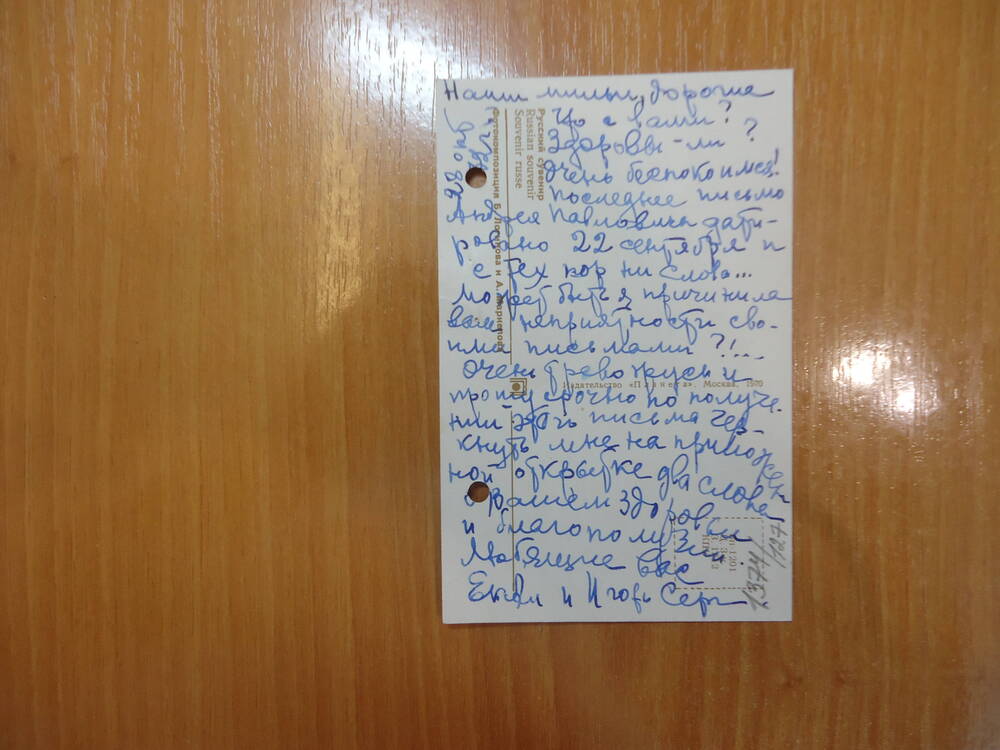 Наши милые, дорогие
Что с вами?
Здоровы-ли?
очень беспокоимся!
последнее письмо
Андрея Павловича дати-
ровано 22 сентября и
с тех пор ни слова...
Может быть я причинила
вам неприятности сво-
ими письмами?!...
Очень тревожусь и
прошу срочно по получе-
нии этого письма чер-
кнуть мне на приложен-
ной открытке два слова
о Вашем здоровьи
и благополучии
Любящие вас
и Игорь Серг
Русский сувенир
Russian souvenir
Souvenir russe
Фотокомпозиция Б. и А.
Издательство «Планета». Москва. 1970
1374/127